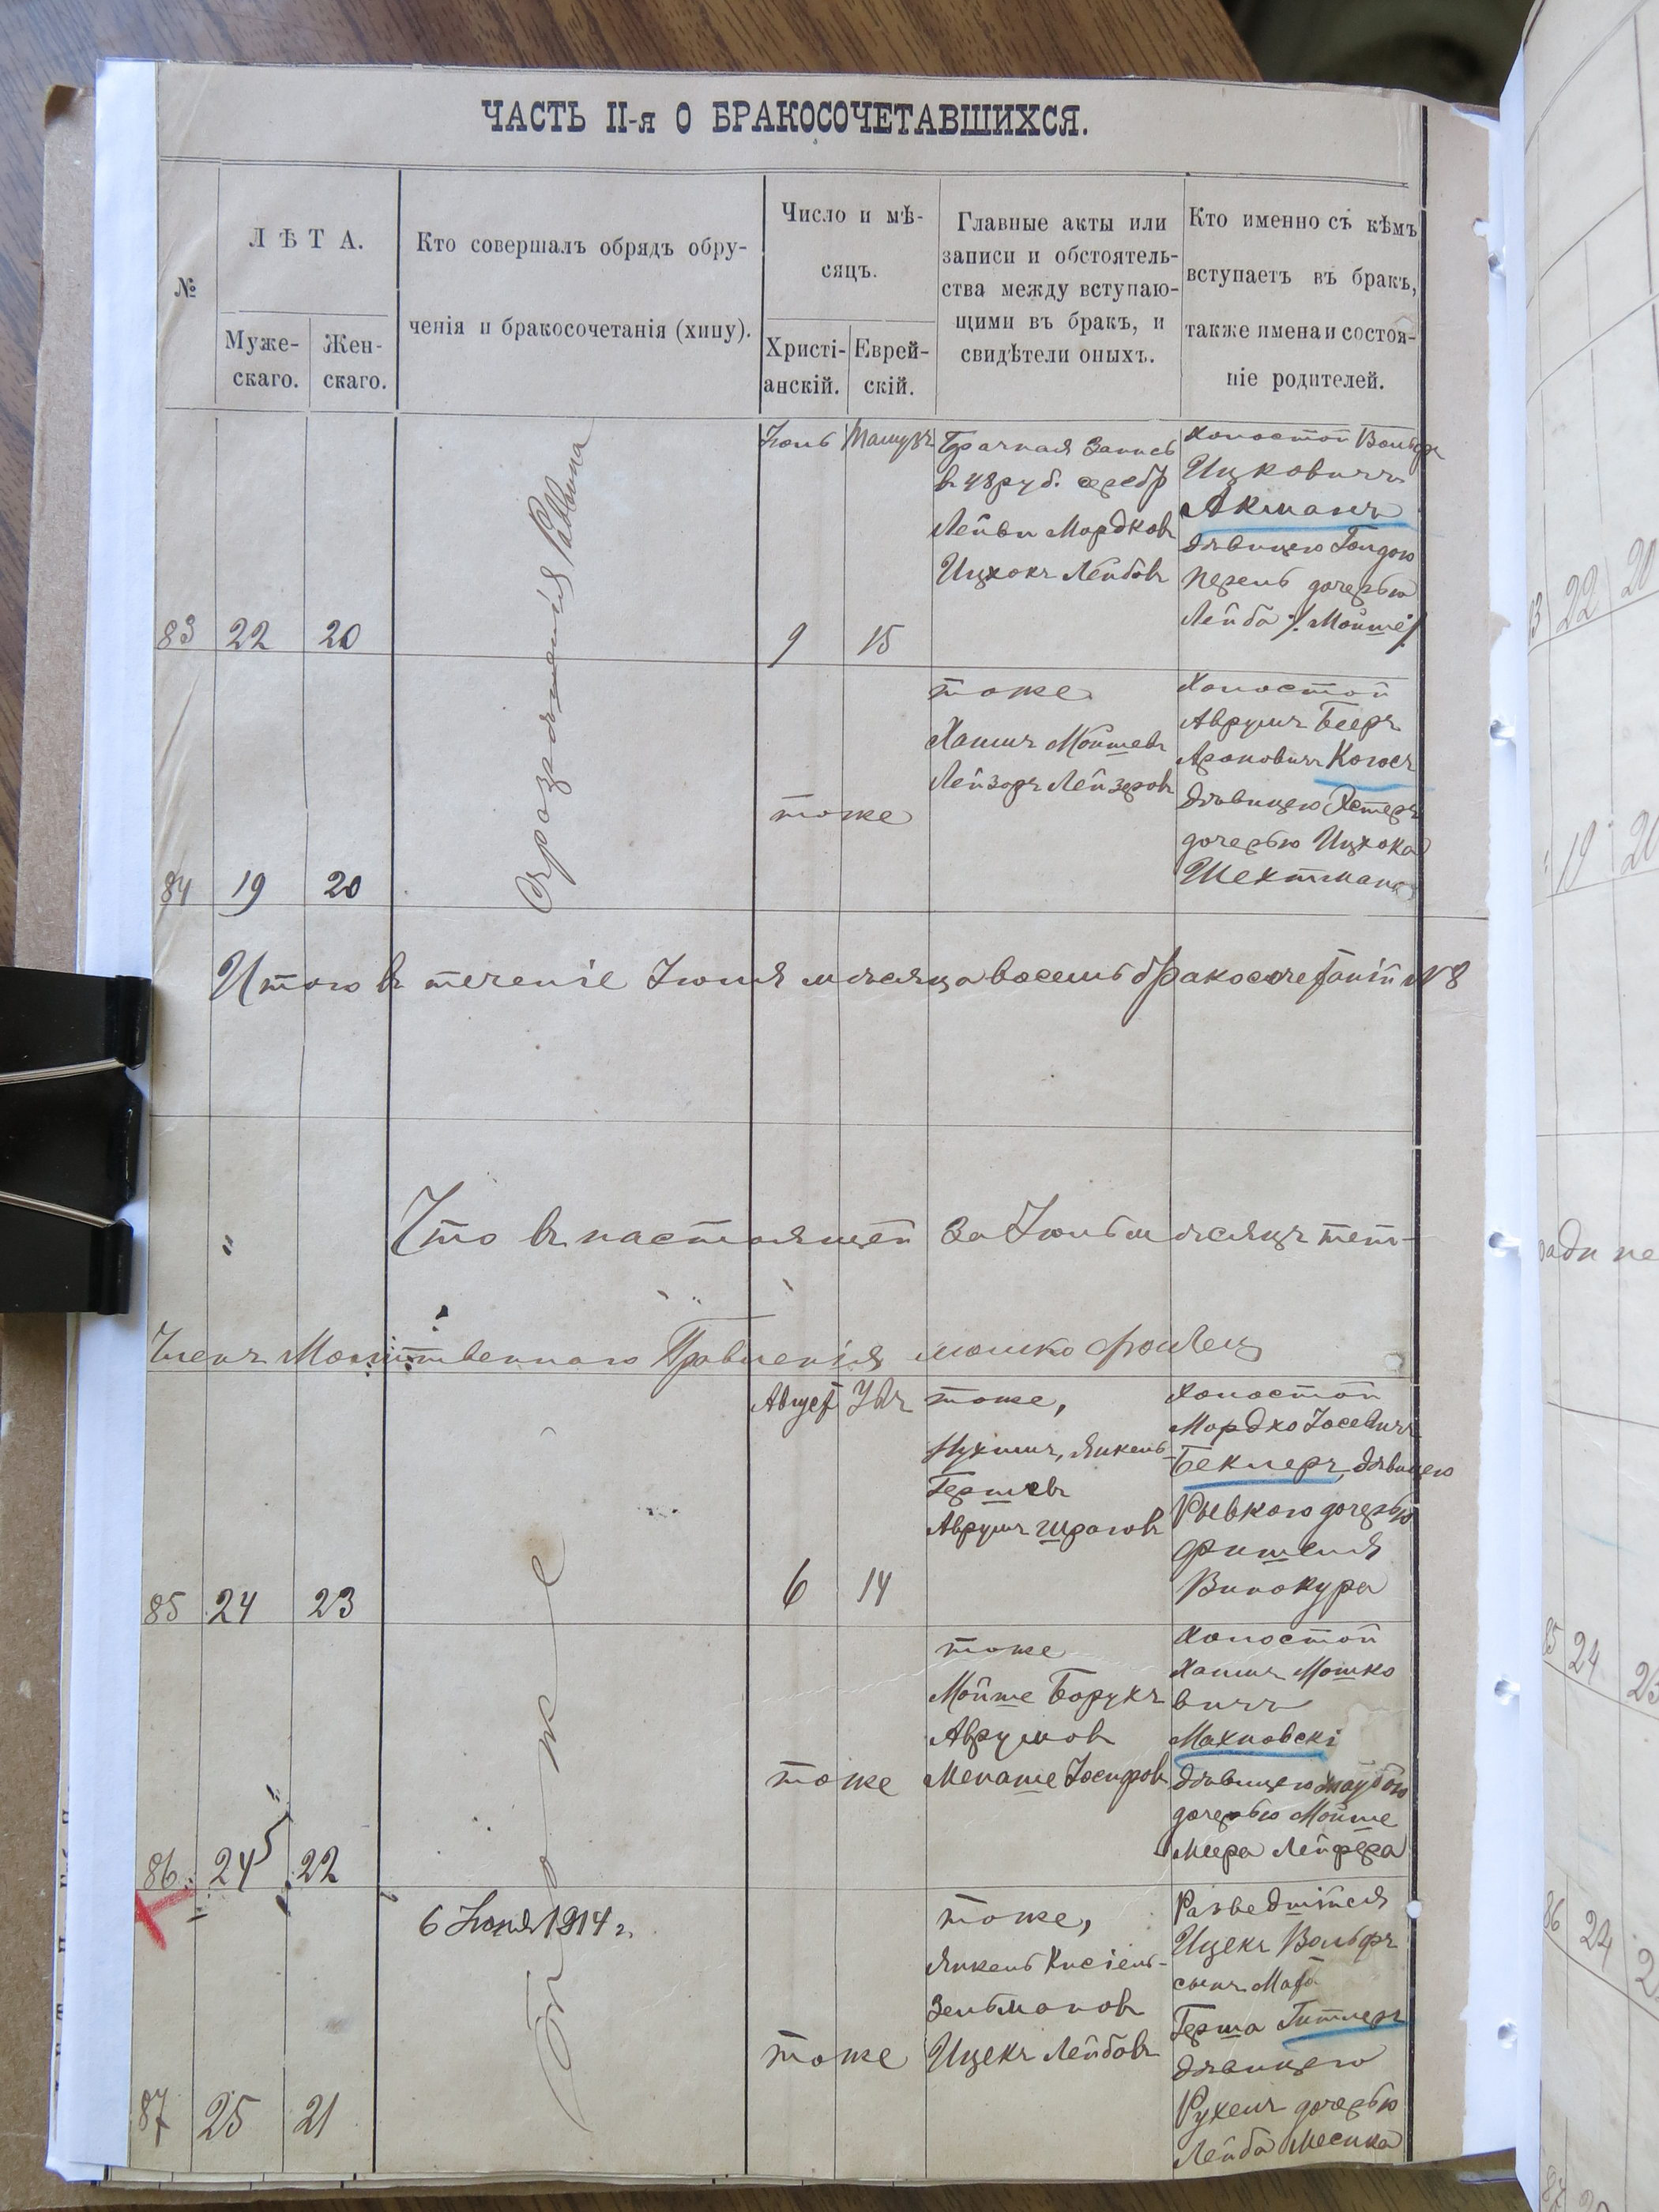 ЧАСТЬ II-я О БРАКОСОЧЕТАВШИХСЯ.
№
ЛѢТА.
Муже-
скаго.
Жен-
скаго.
Кто совершалъ обрядъ обру-
ченія и бракосочетанія (хипу).
Число и мѣ-
сяцъ.
Христі-
анскій.
Еврей-
скій.
Главные акты или
записи и обстоятель-
ства между вступаю-
щими въ бракъ, и
свидѣтели оныхъ.
Кто именно съ кѣмъ
вступаетъ въ бракъ,
также имена и состоя-
ніе родителей.
83
22
20
Раввина
Іюль
9
Тамузъ
15
Брачная Запись
въ 48 руб. серебр
Лейви Мордковъ
Ицхокъ Лейбовъ
Холостой Вольфъ
Ицковичъ
Акманъ
дѣвицею Голдою
Перель дочерью
Лейба /. Мойше /.
84
19
20
тоже
тоже
Хаимъ Мойшевъ
Лейзоръ Лейзеровъ
Холостой
Аврумъ Бееръ
Ароновичъ Когосъ
дѣвицею Эстеръ
дочерью Ицхока
Шехтмана
Итого въ теченіе Іюля мѣсяца восемь бракосочетаній № 8
Что въ настоящей за Іюль мѣсяцъ тет-
Членъ Молитвеннаго Правленія мошко
85
24
23
тоже
Август
6
Увъ
14
тоже,
Нухимъ, Янкель
Гершевъ
Аврумъ Шраговъ
Холостой
Мордхо Іосевичъ
Беклеръ, дѣвицею
Рывкою дочерью
Фишеля
Винокура
86
24
22
тоже
тоже
Мойше Борухъ
Аврумовъ
Менаше Іосифовъ
Холостой
Хаимъ Мошко
вичъ
Махновскі
дѣвицею
дочерью Мойше
Меера
87
25
21
6 Іюня 1914 г.
тоже
тоже,
Янкель Кисіель-
Зельмановъ
Ицекъ Лейбовъ
Разведшійся
Ицекъ Вольфъ
сынъ
Герша Гитлеръ
дѣвицею
Рухель дочерью
Лейба